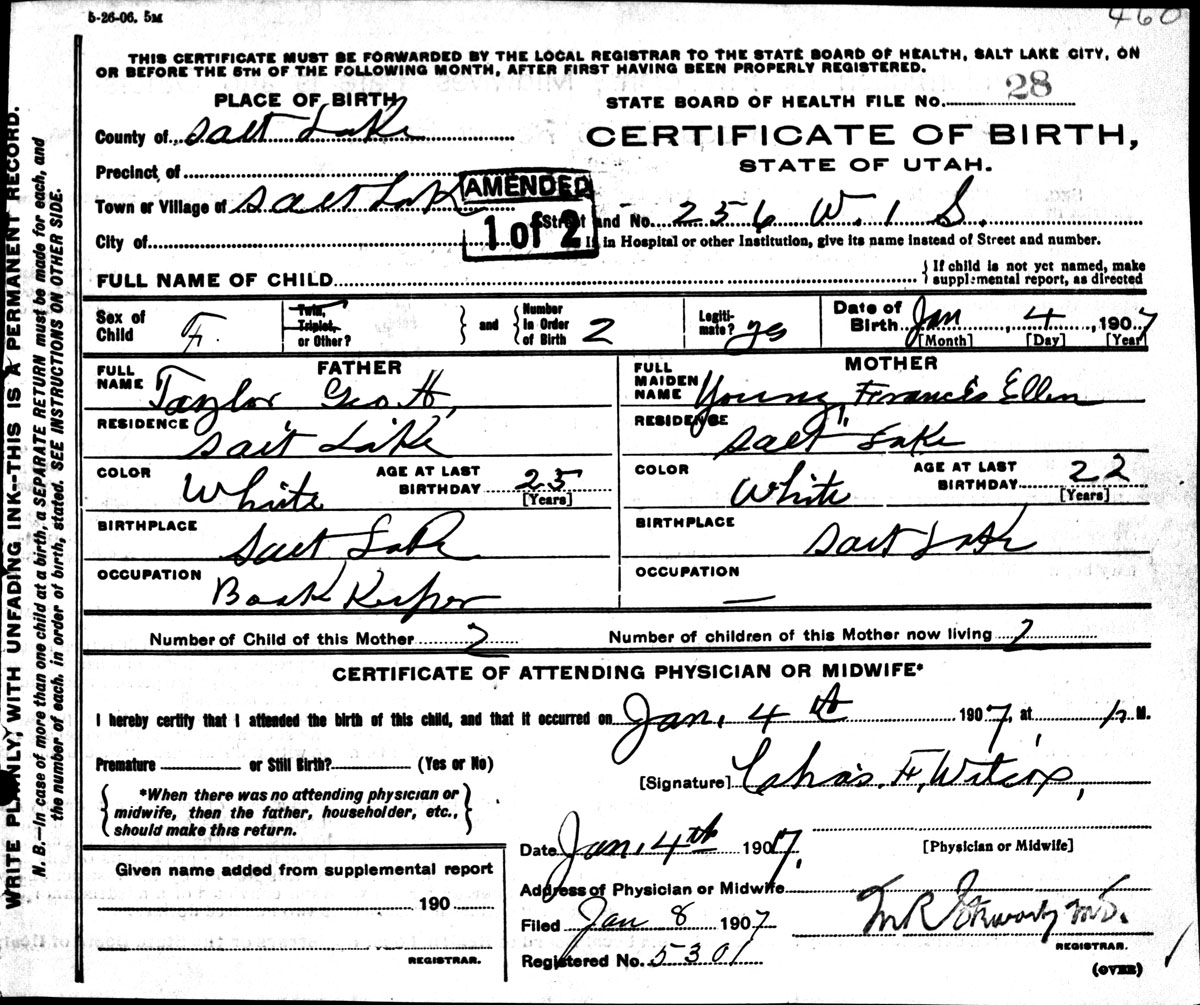 5-26-06. 5M
460
THIS CERTIFICATE MUST BE FORWARDED BY THE LOCAL REGISTRAR TO THE STATE BOARD OF HEALTH, SALT LAKE CITY, ON
OR BEFORE THE 5TH OF THE FOLLOWING MONTH, AFTER FIRST HAVING BEEN PROPERLY REGISTERED.
PLACE OF BIRTH
STATE BOARD OF HEALTH FILE No. 28
County of Salt Lake
CERTIFICATE OF BIRTH,
STATE OF UTAH.
Precinct of
Town or Village of Salt Lake
AMENDED
1 of 2
Street and No. 256 W. 1 S.
City of
If in Hospital or other Institution, give its name instead of Street and number.
FULL NAME OF CHILD
If child is not yet named, make
supplemental report, as directed
Sex of
Child F.
Twin,
Triplet,
or Other?
and
Number
in Order
of Birth 2
Legiti-
mate? yes
Date of
Birth Jan, 4, 1907
[Month] [Day] [Year]
FATHER
FULL
NAME Taylor Geo H,
RESIDENCE Salt Lake
COLOR White
AGE AT LAST
BIRTHDAY 25
[Years]
BIRTHPLACE Salt Lake
OCCUPATION Book Keeper
MOTHER
FULL
MAIDEN
NAME Young, Francis Ellen
RESIDENCE Salt Lake
COLOR White
AGE AT LAST
BIRTHDAY 22
[Years]
BIRTHPLACE Salt Lake
OCCUPATION —
Number of Child of this Mother 2
Number of children of this Mother now living 2
CERTIFICATE OF ATTENDING PHYSICIAN OR MIDWIFE*
I hereby certify that I attended the birth of this child, and that it occurred on Jan, 4th 1907, at M.
Premature or Still Birth? (Yes or No)
[Signature] Chas. F. Wilcox,
*When there was no attending physician or
midwife, then the father, householder, etc.,
should make this return.
Date Jan. 4th 1907,
[Physician or Midwife]
Given name added from supplemental report
190
REGISTRAR.
Address of Physician or Midwife
Filed Jan 8 1907
M R
REGISTRAR.
Registered No. 5301
(OVER)
WRITE PLAINLY, WITH UNFADING INK--THIS IS A PERMANENT RECORD.
N. B.—In case of more than one child at a birth, a SEPARATE RETURN must be made for each, and
the number of each, in order of birth, stated. SEE INSTRUCTIONS ON OTHER SIDE.